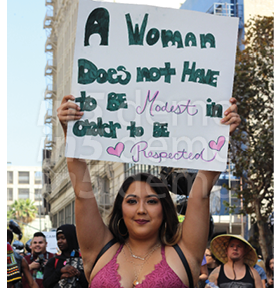 A Woman
Does not Have
to BE Modest in
order to BE
Respected